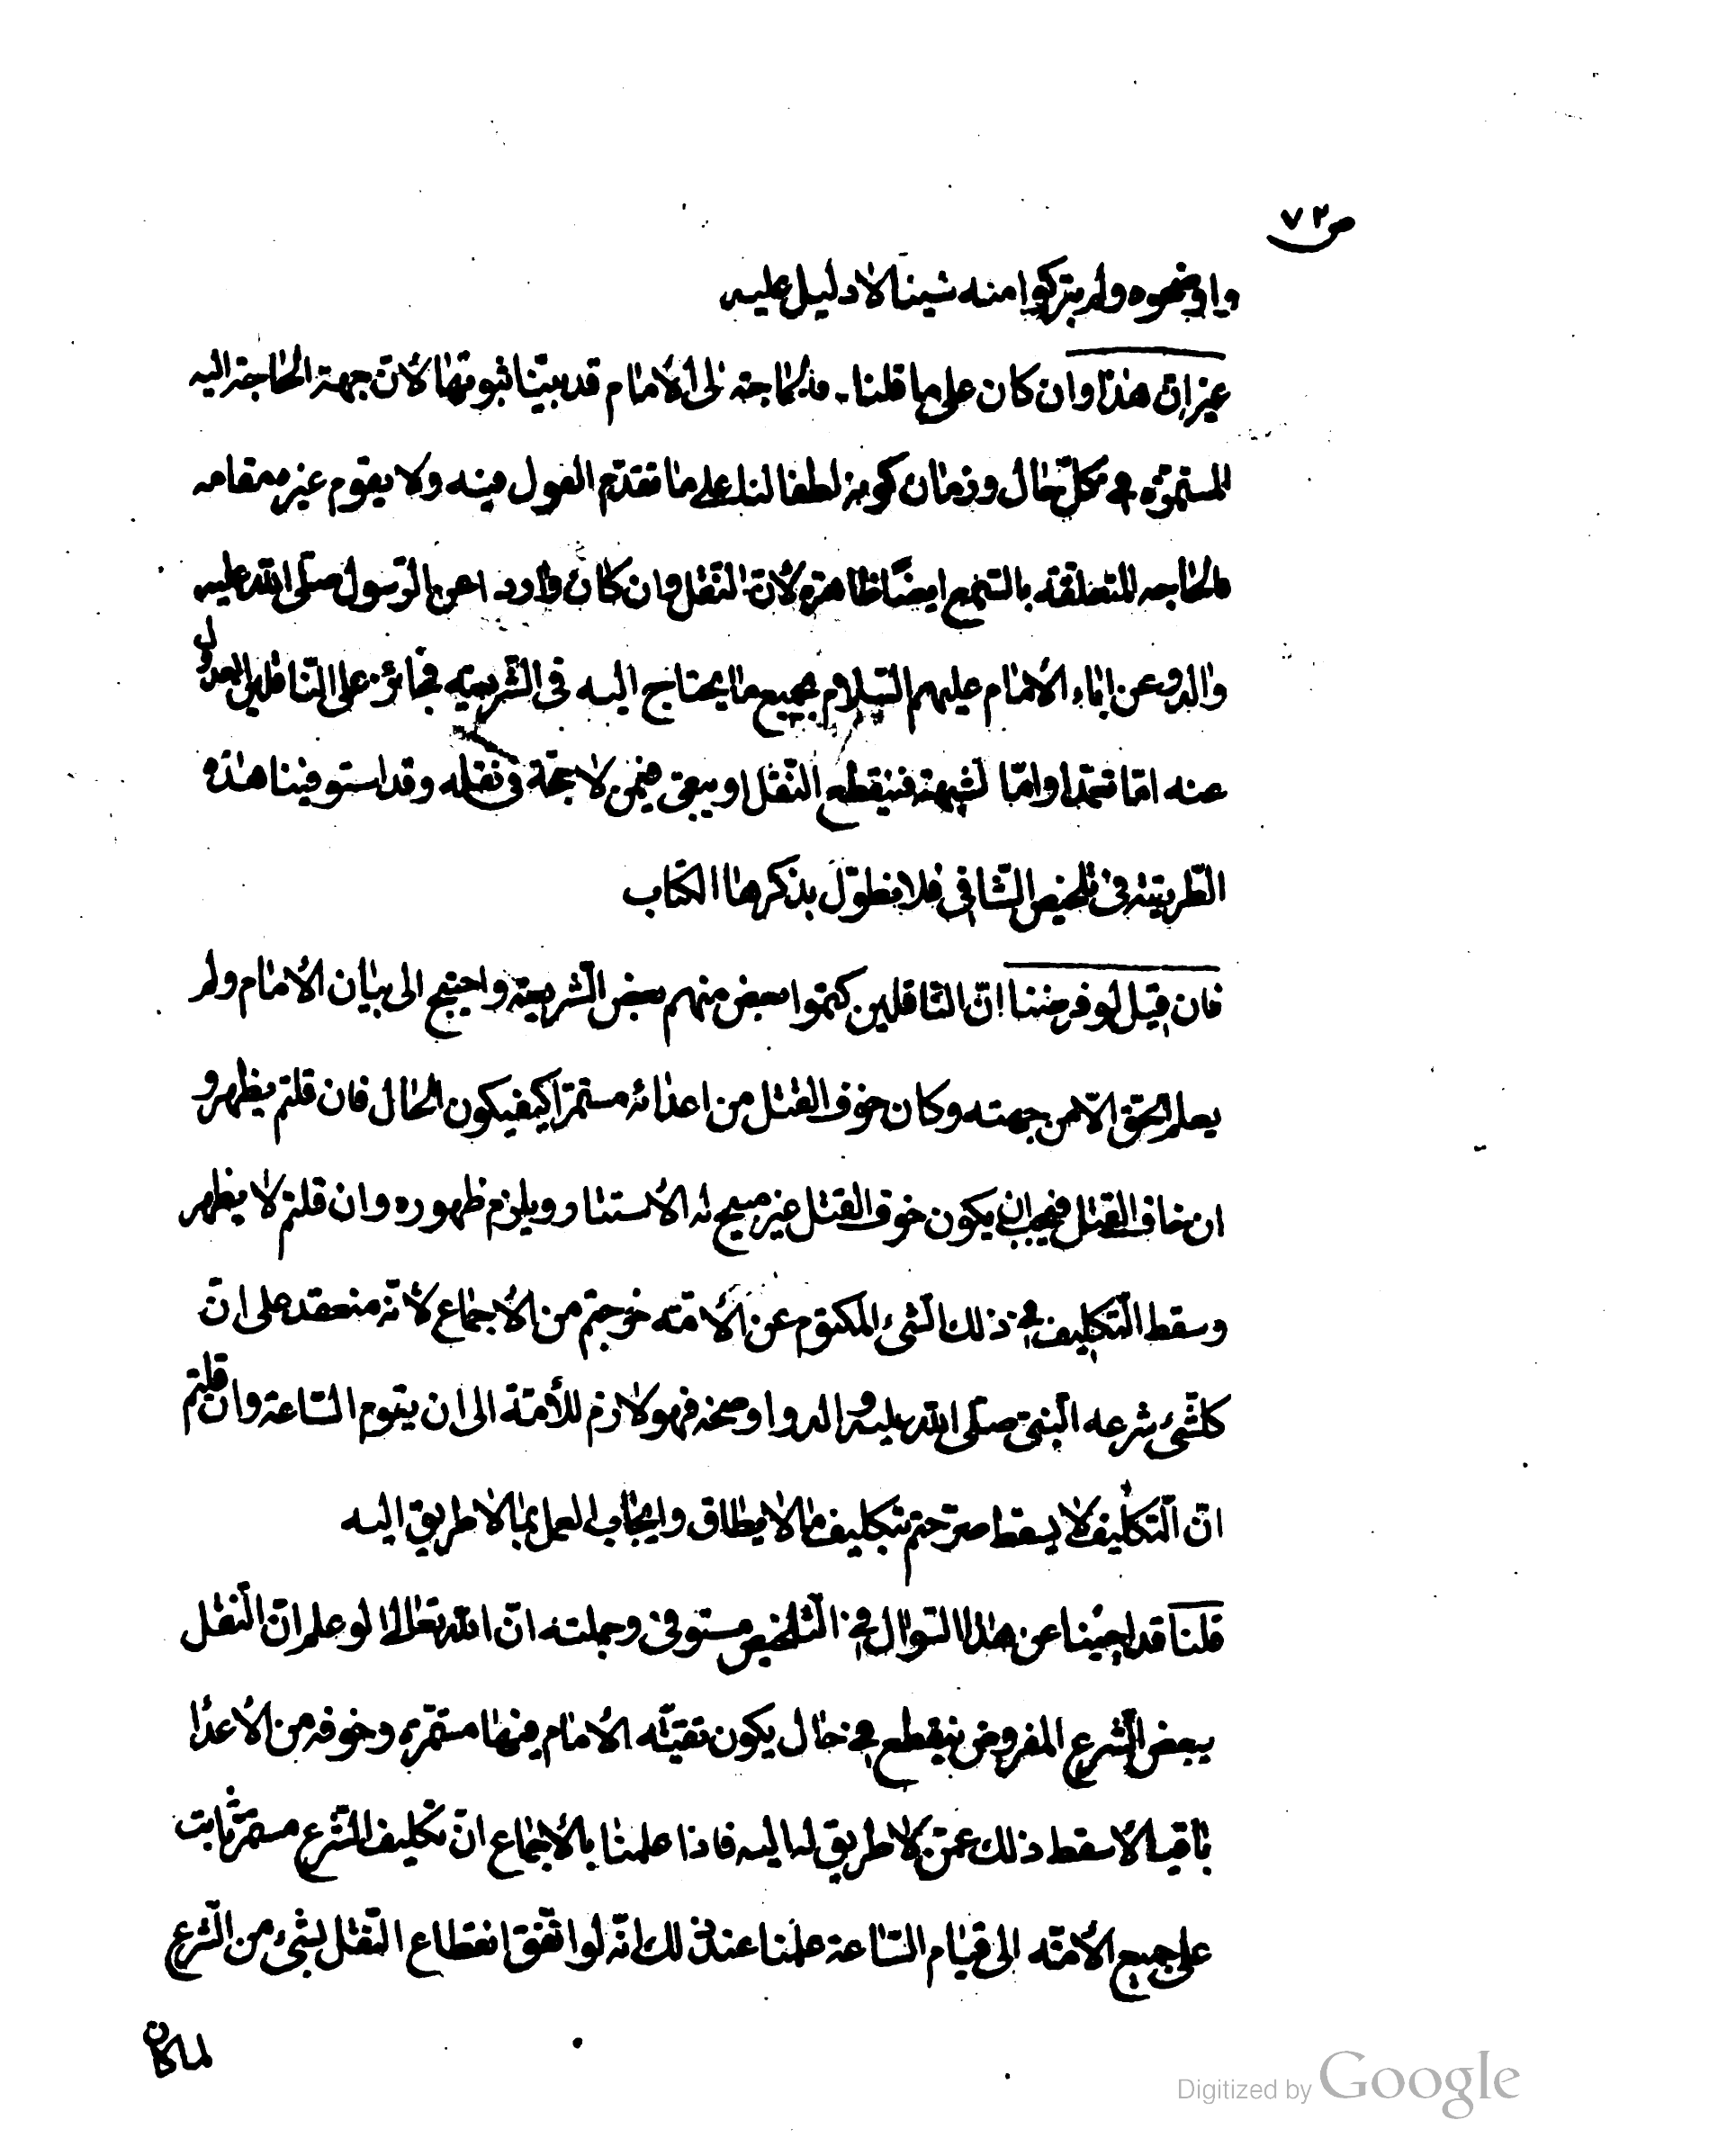 ص ٧٢
واوضحوه ولم يتركوا منه شيئا لا دليل عليه
غير ان هذا وان كان على ما قلناه فالحاجة الى الامام قد بيّنا ثبوتها لانّ جهة الحاجة اليه
المستمرّة فى كلّ حال وزمان كونه لطفا لنا على ما تقدّم القول فيه ولا يقوم غيره مقامه
فالحاجه المتعلقة بالسّمع ايضًا ظاهرة لانّ النّقل وان كان واردا عن الرّسول صلّى الله عليه
واله وعن اباء الامام عليهم السّلام بجميع ما يحتاج اليه فى الشّريعة فجائز على النّاقلين العدول
عنه امّا تعمّدا وامّا لشبهة فينقطع النّقل او يبقى فيمن لا حجّة فى نقله وقد استوفينا هذه
الطّريقة فى تلخيص الشّافى فلا نطوّل بذكرها الكتاب
فان قيل لو فرضنا انّ النّاقلين كتموا بعض منهم بعض الشّريعة واحتيج الى بيان الامام ولم
يعلم الحق الّا من جهته وكان خوف القتل من اعدائه مستمرّا كيف يكون الحال فان قلتم يظهر و
ان خاف القتل فيجب ان يكون خوف القتل غير مبيح له الاستتار ويلزم ظهوره وان قلتم لا يظهر
وسقط التّكليف فى ذلك الشّىء المكتوم عن الامّة خرجتم من الاجماع لانّه منعقد على انّ
كلّشىء شرعه النّبىّ صلّى الله عليه واله واوضحه فهو لازم للأمّة الى ان يقوم السّاعة وان قلتم
انّ التّكليف لا يسقط صرّحتم بتكليف ما لا يطاق وايجاب العمل بما لا طريق اليه
قلنا قد اجبنا عن هذا السّوال فى التّلخيص مستوفى وجملته انّ الله تعالى لو علم انّ النّقل
ببعض الشّرع المفروض ينقطع فى حال يكون تقيّة الامام فيها مستمّرة وخوفه من الاعدا
باقيا لاسقط ذلك عمّن لا طريق له اليه فاذا علمنا بالاجماع انّ تكليف الشّرع مستمرّ ثابت
على جميع الامّة الى قيام السّاعة علمنا عند ذلك انّه لو اتّفق انقطاع النّقل بشىء من الشّرع
لما كان
Digitized by Google